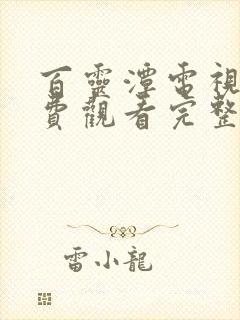 百靈潭電視
費觀看完整
雷小龍